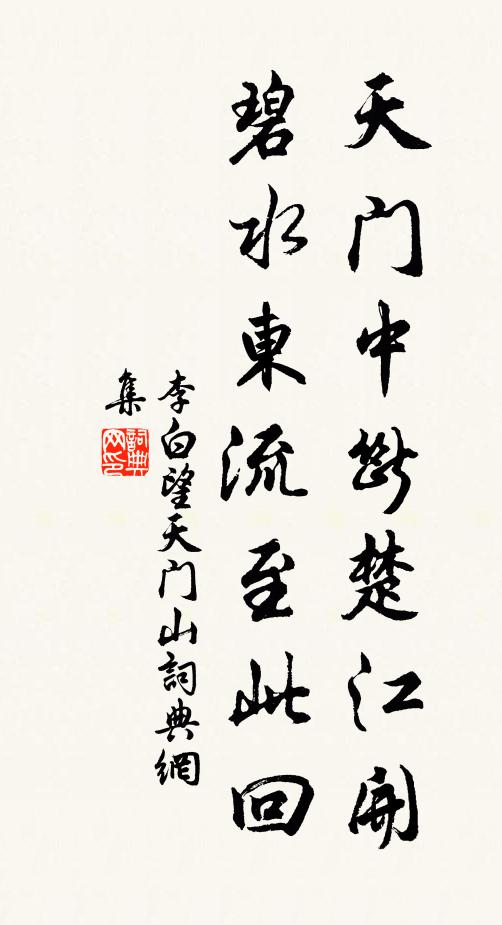 天门中斷楚江開
碧水東流至此回
李白望天门山詞典網
集
詞典网印